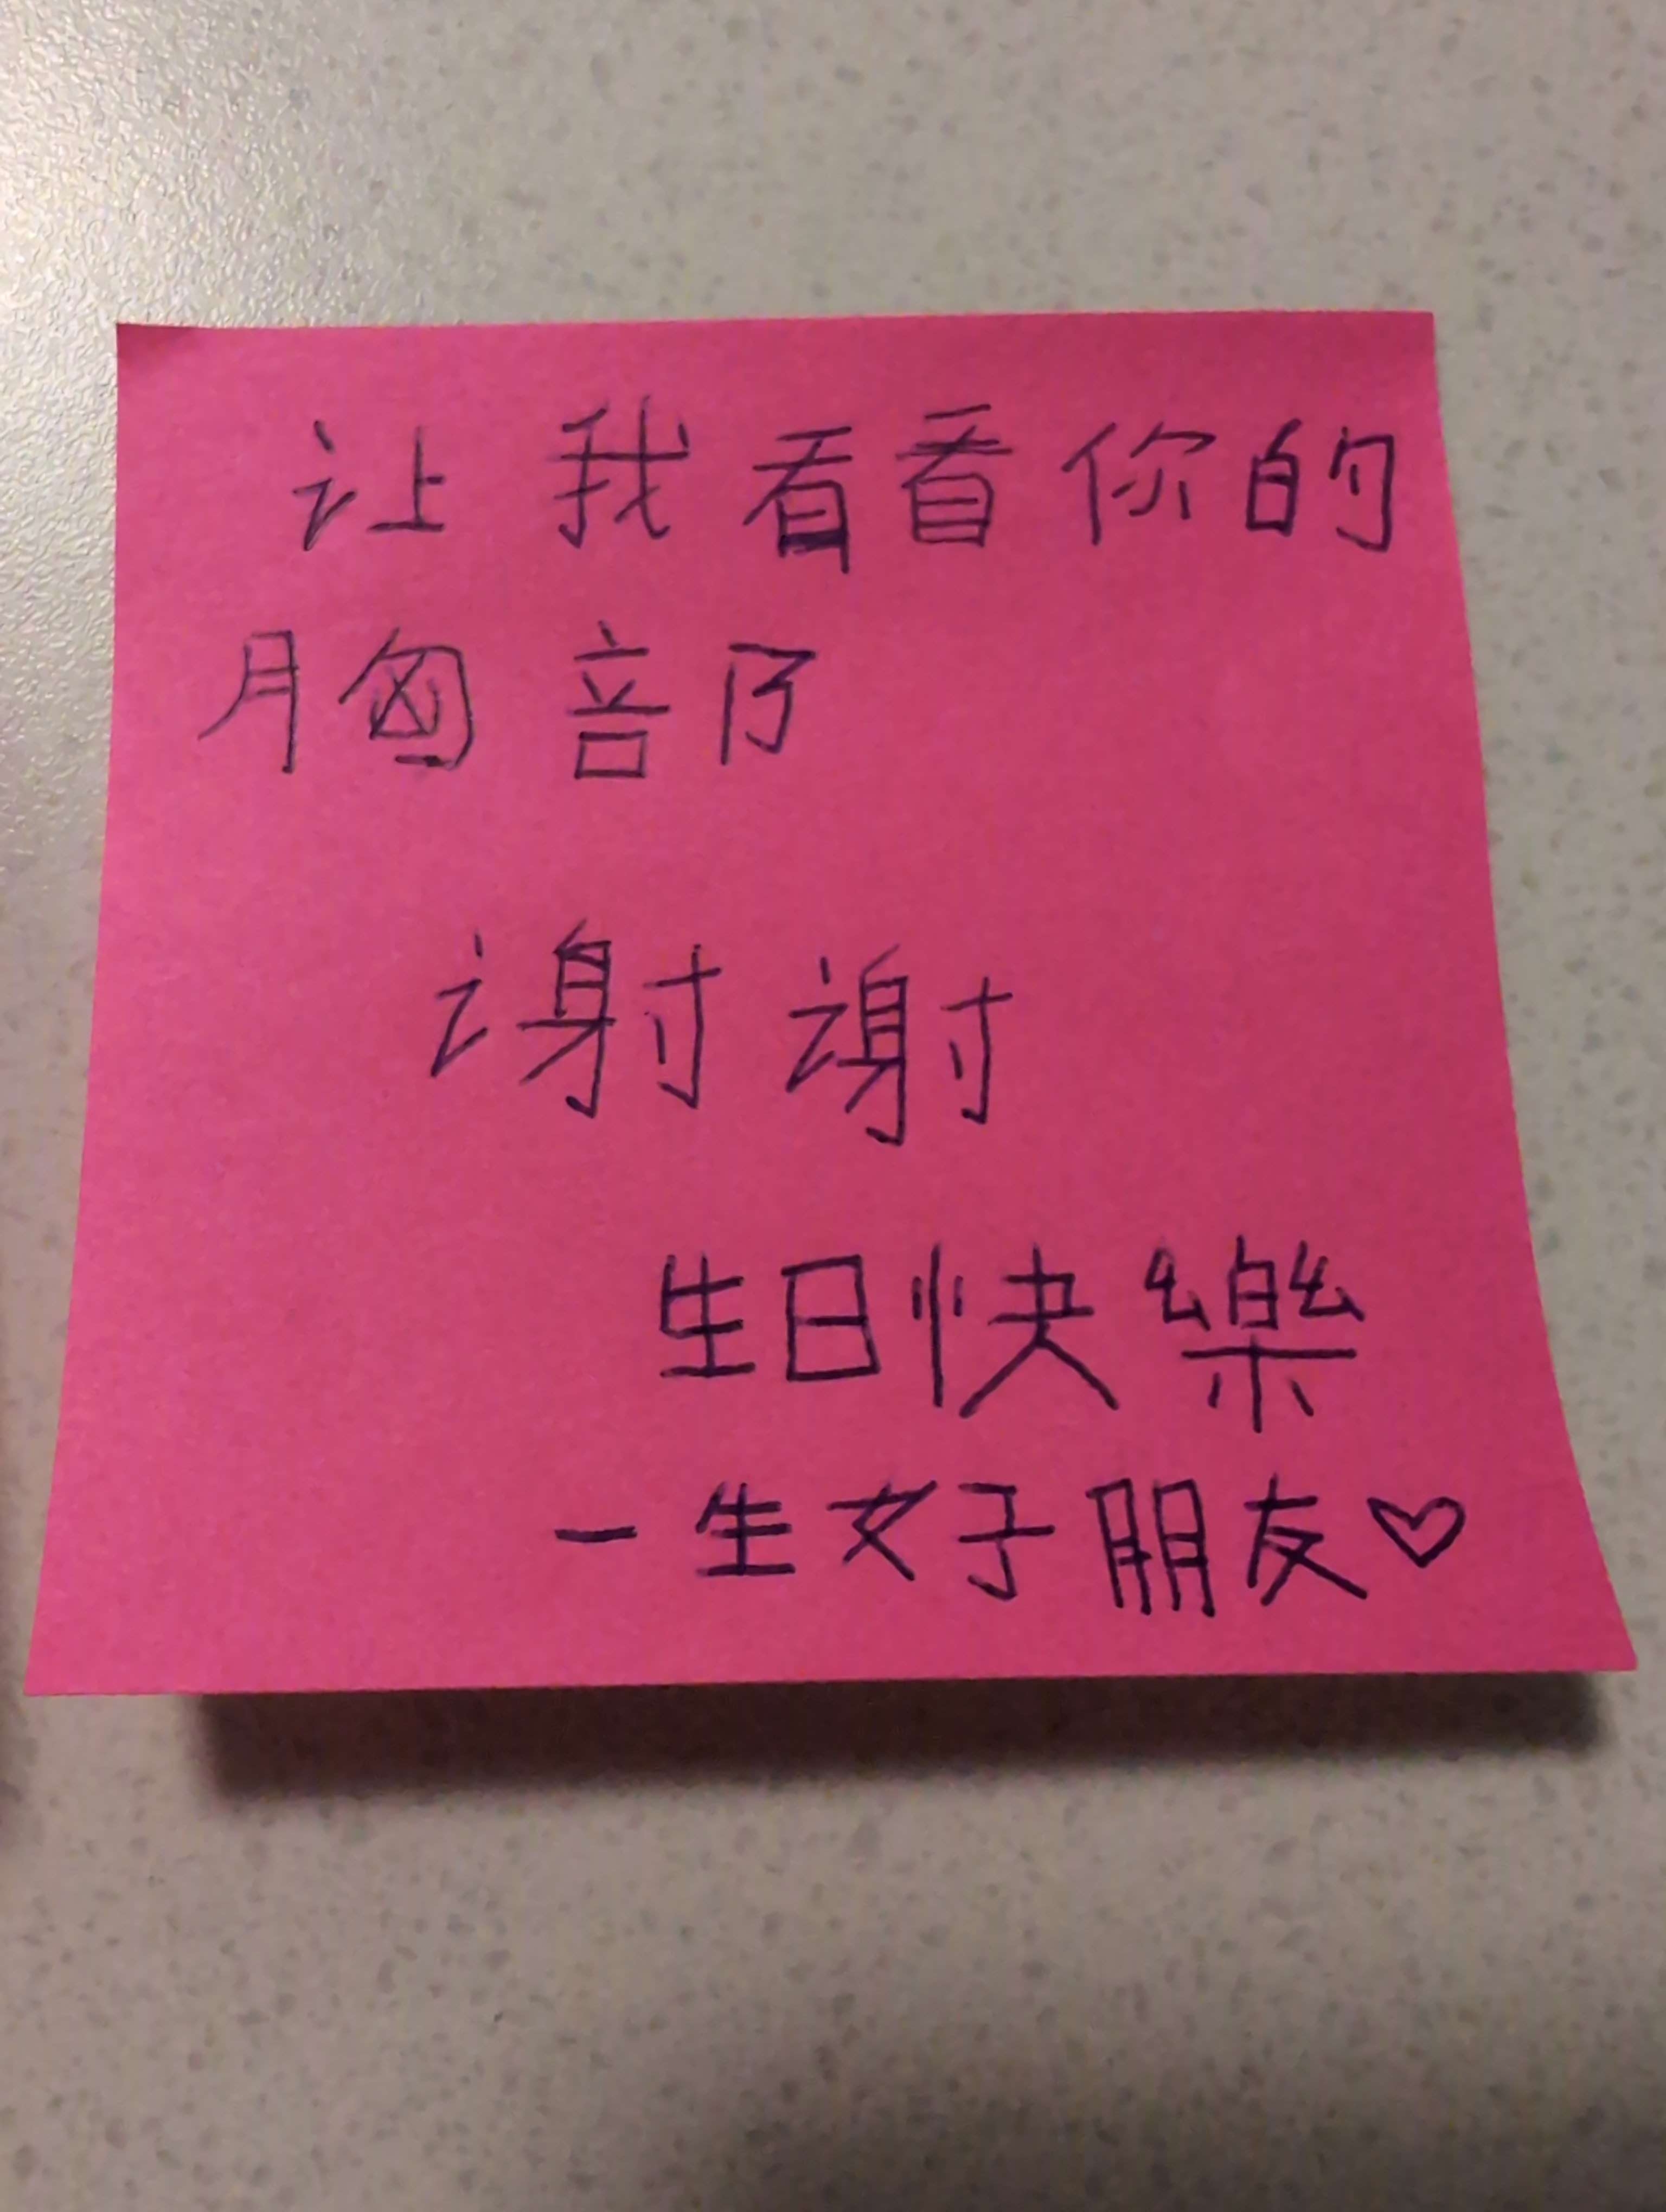 让我看看你的
胸部
谢谢
生日快樂
一生女子朋友♡